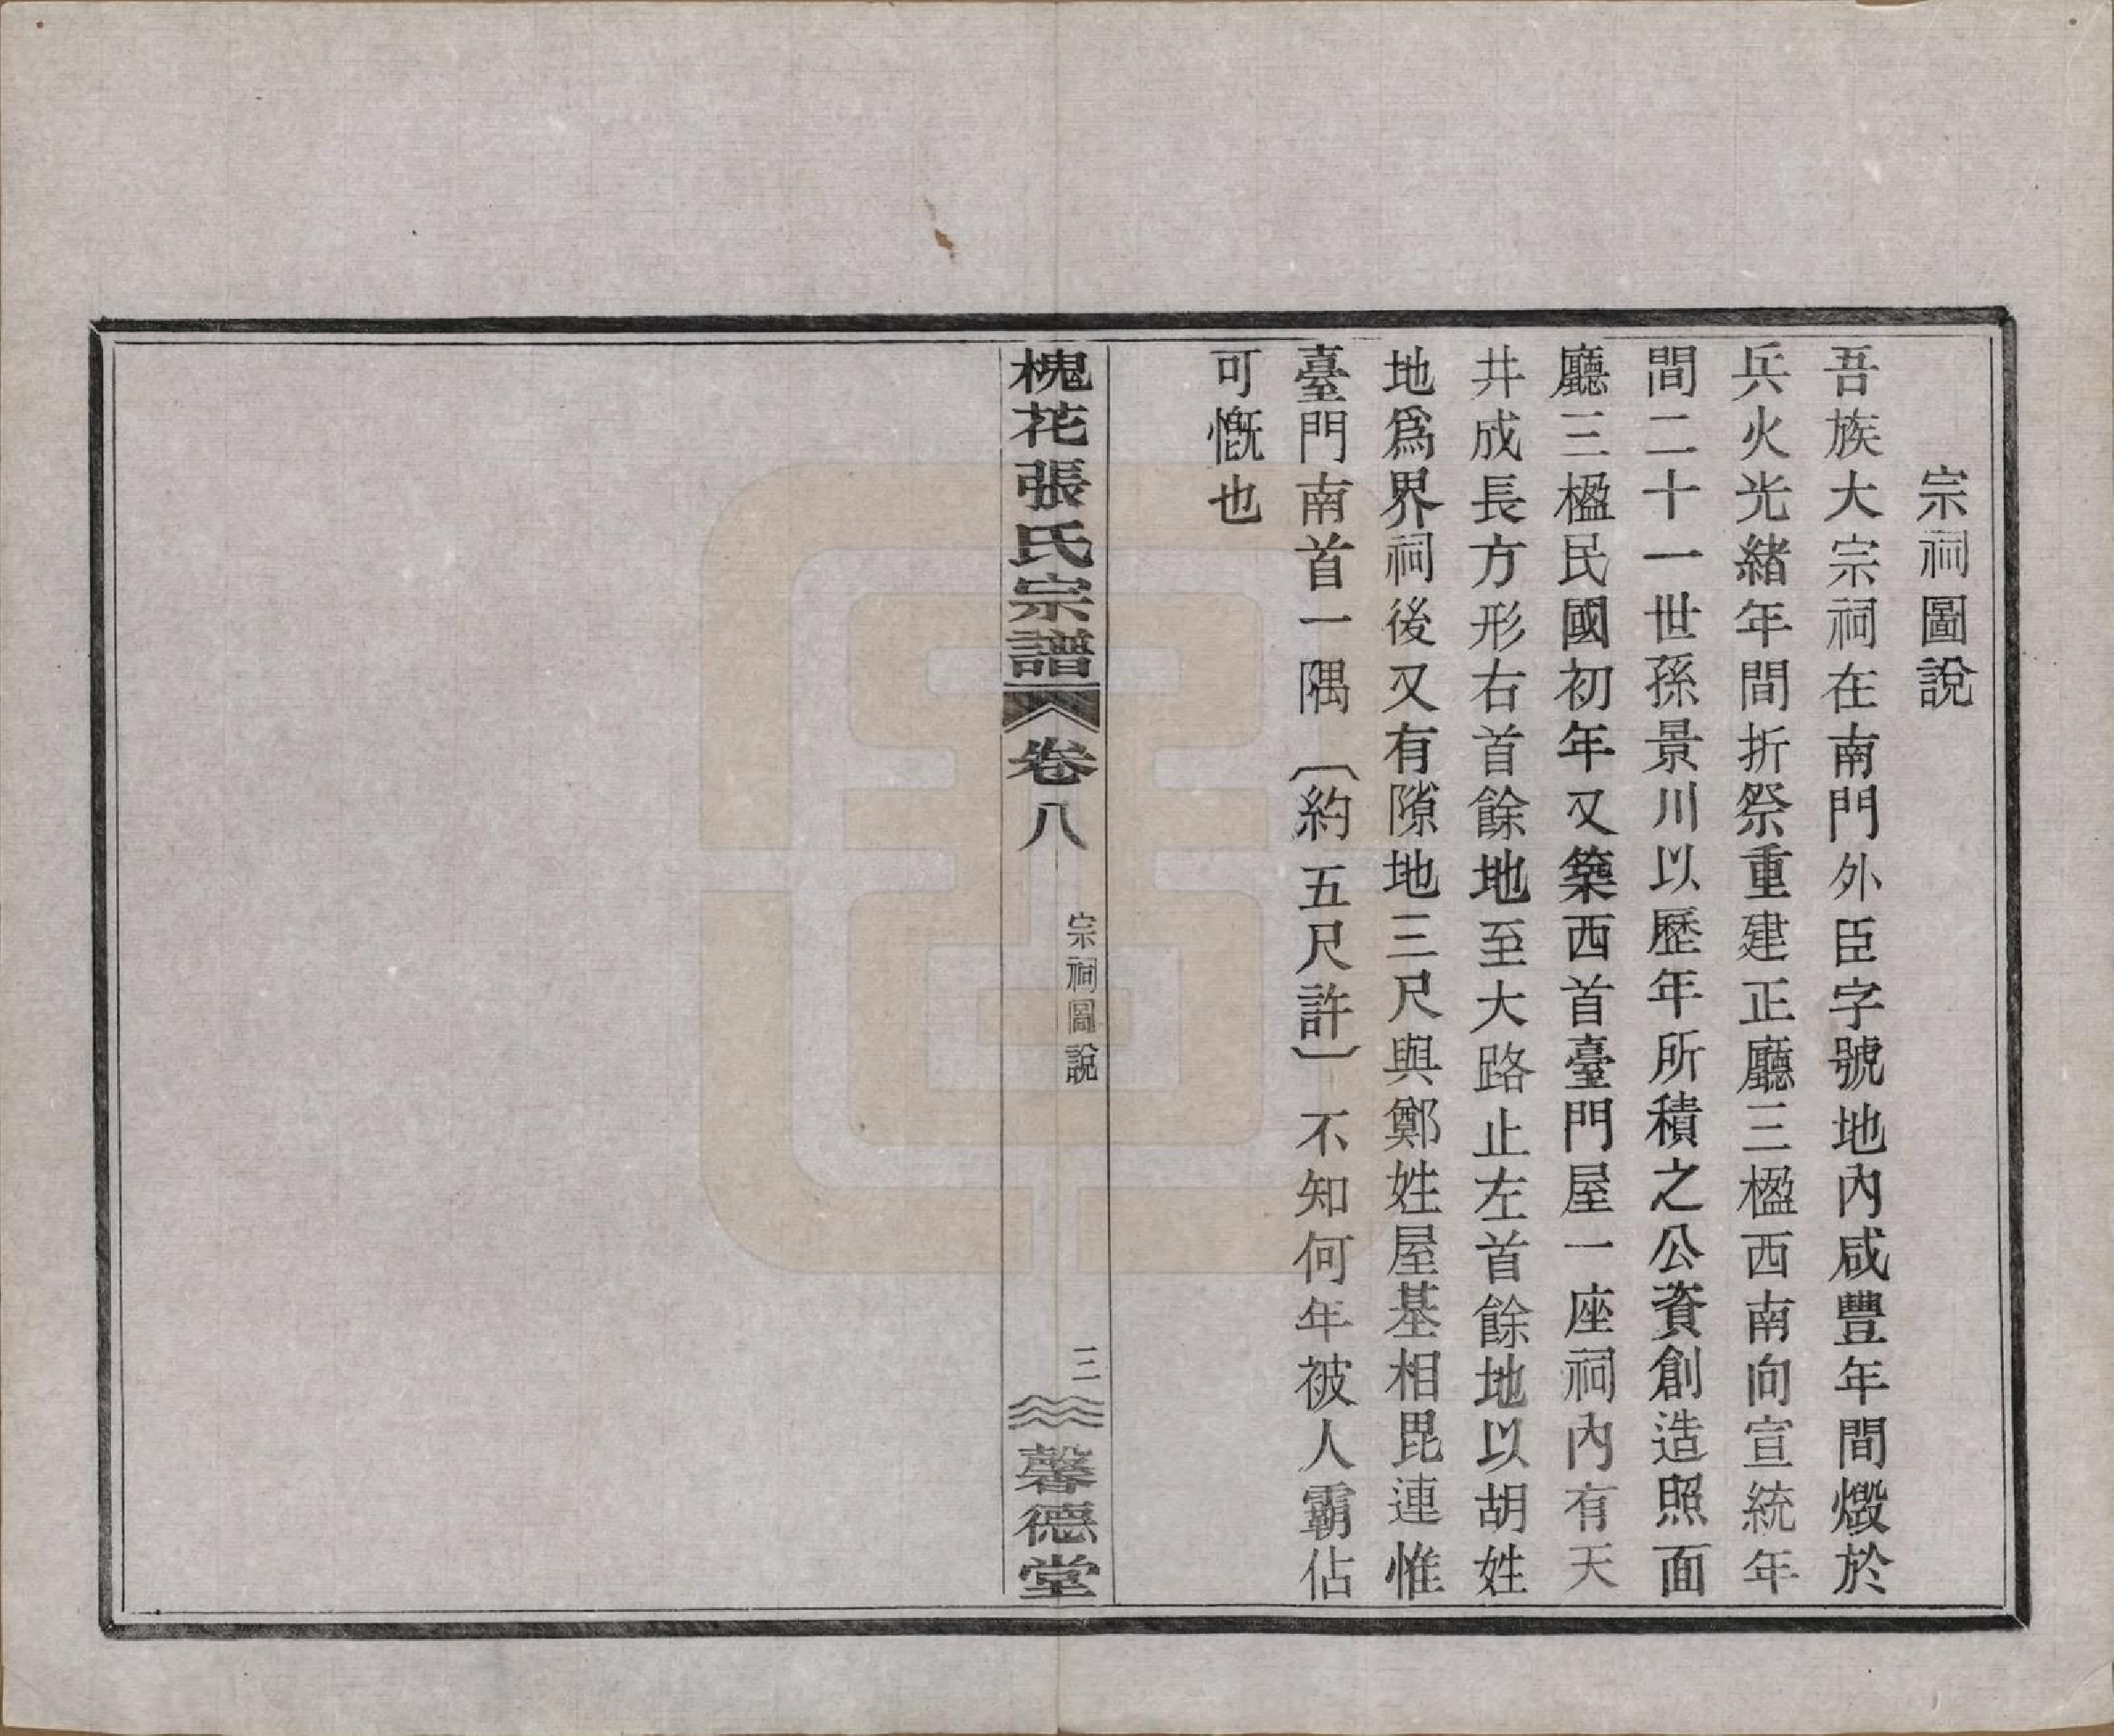 宗祠圖說
吾族大宗祠在南門外臣字號地內咸豐年間燬於
兵火光緒年間折祭重建正廳三楹西南向宣統年
間二十一世孫景川以歷年所積之公資創造照面
廳三楹民國初年又築西首臺門屋一座祠內有天
井成長方形右首餘地至大路止左首餘地以胡姓
地爲界祠後又有隙地三尺與鄭姓屋基相毘連惟
臺門南首一隅〔約五尺許〕不知何年被人霸佔
可慨也
槐花張氏宗譜 卷八 宗祠圖說 三 馨德堂